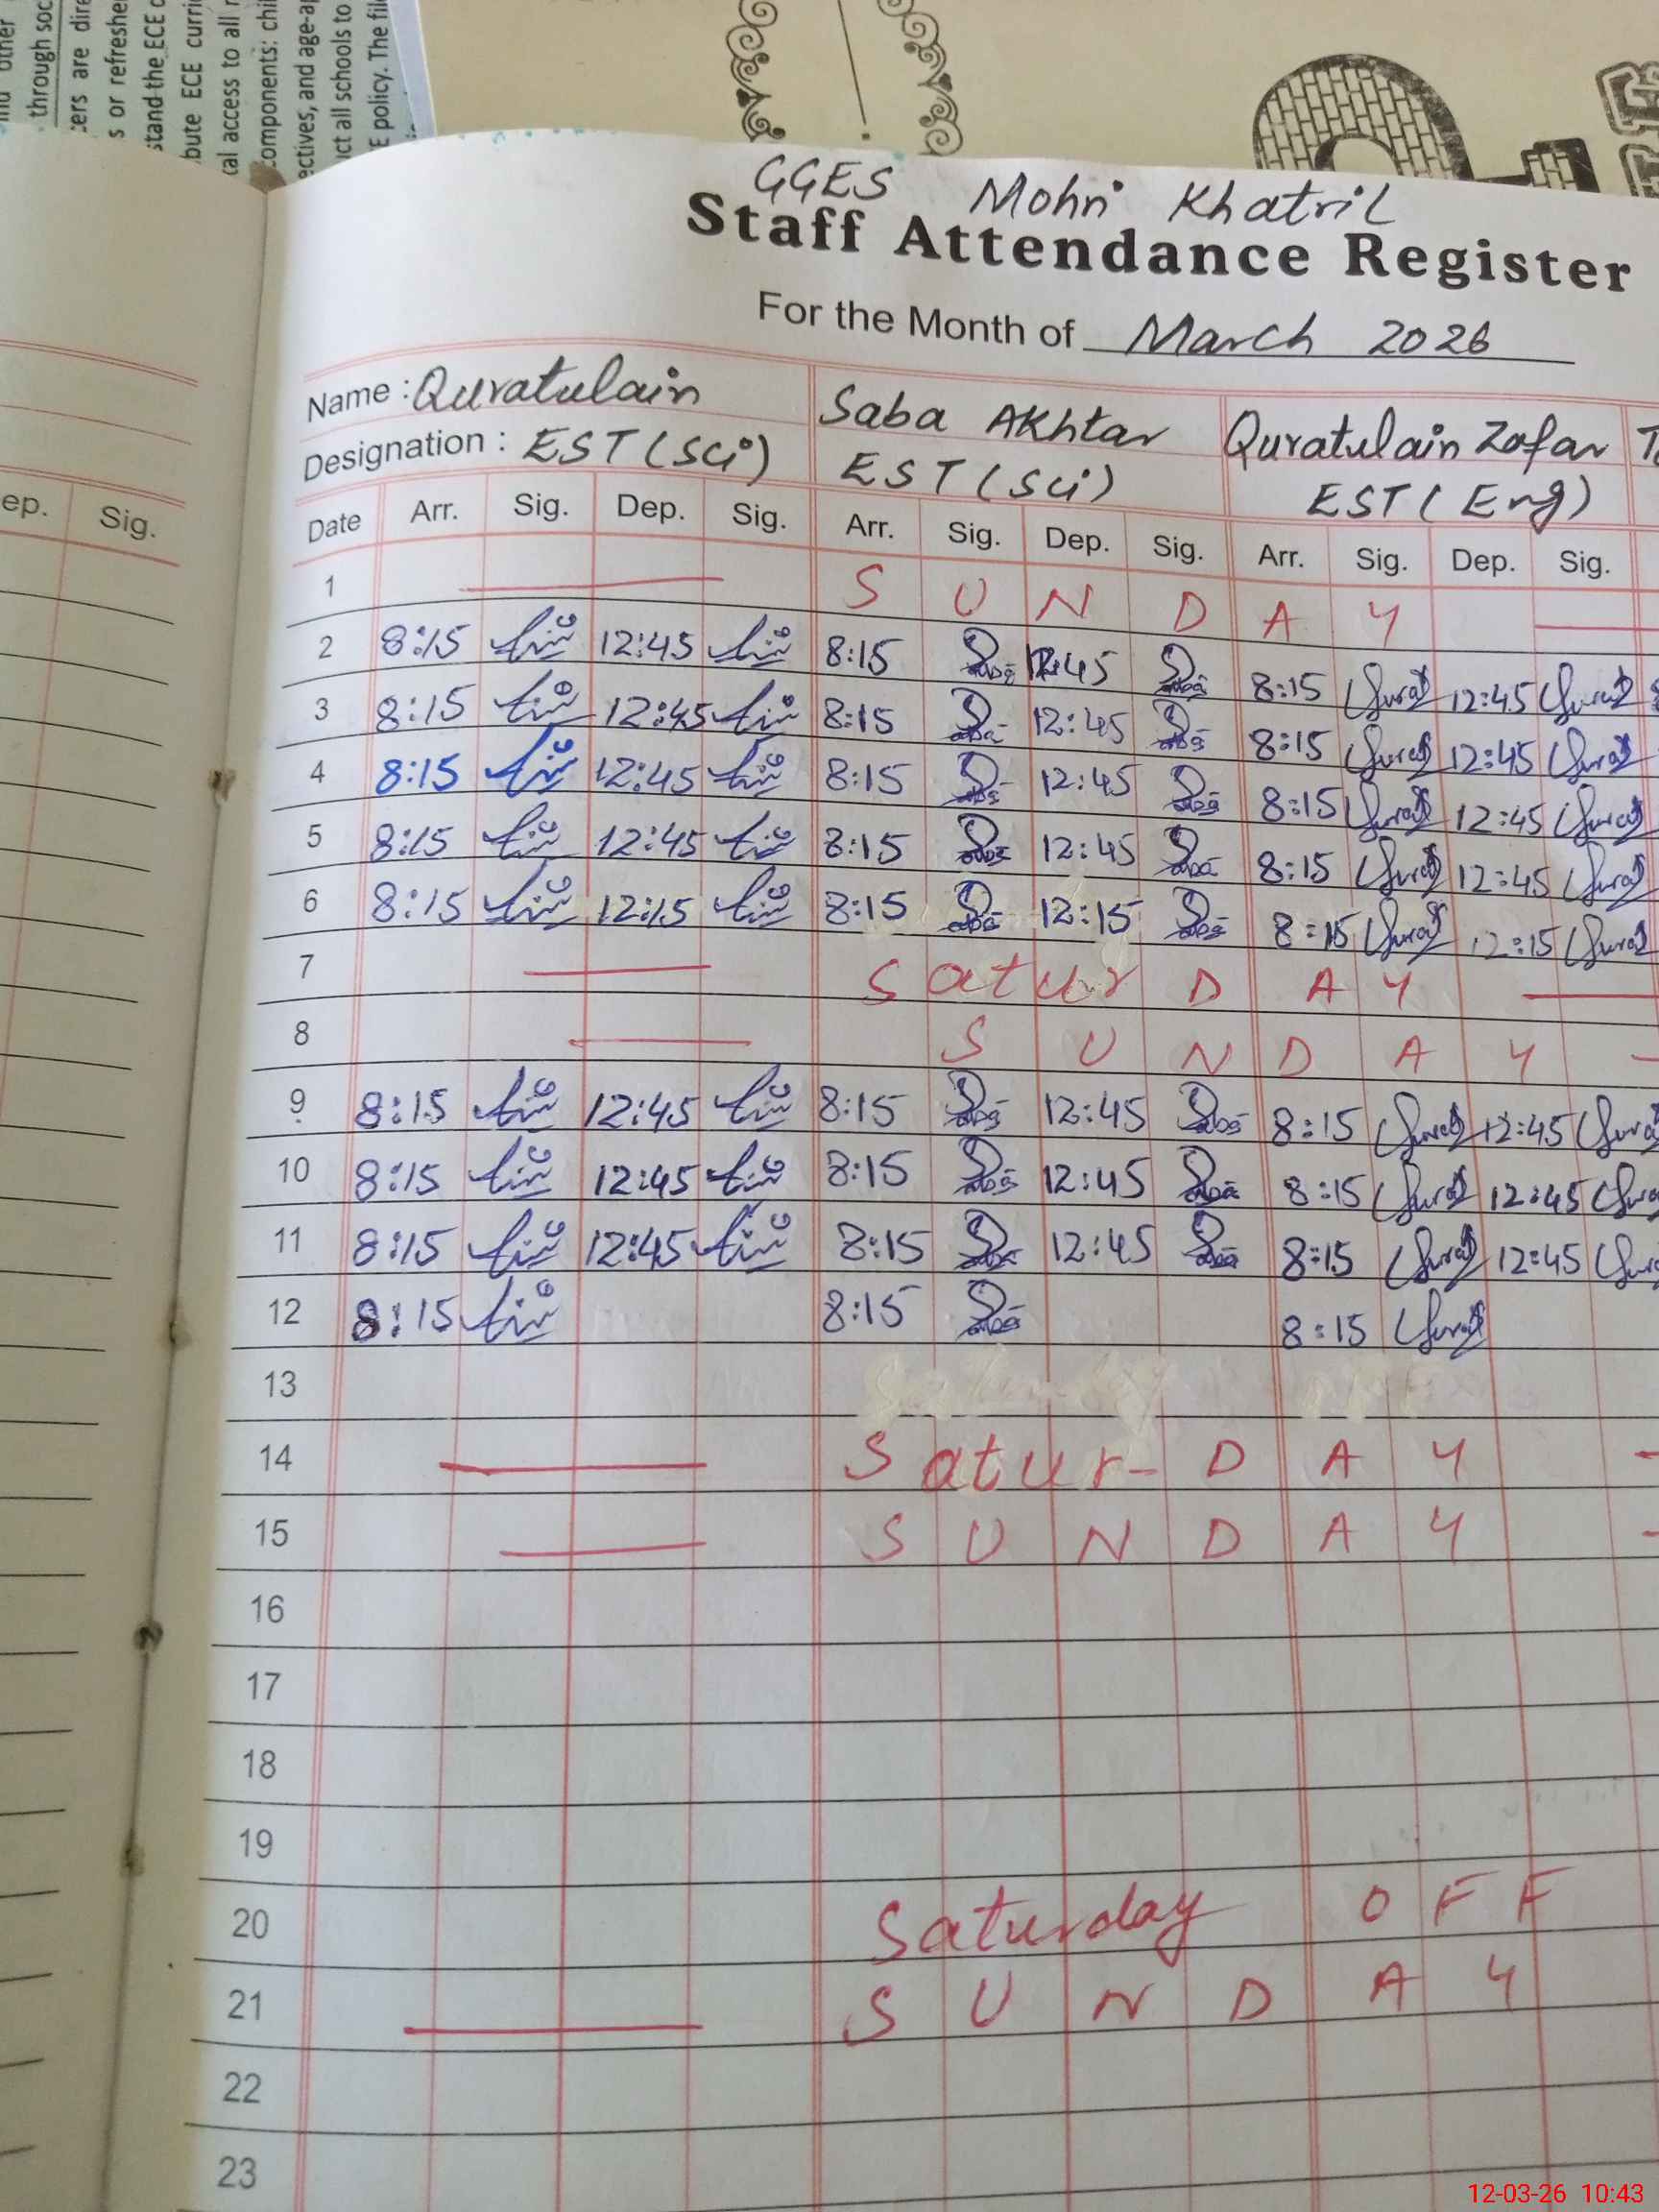 through soc
cers are dire
s or refreshe
stand the ECE c
bute ECE curri
cal access to all
components: chi
ectives, and age-ap
ct all schools to
E policy. The fil
GGES Mohri Khatril
Staff Attendance Register
For the Month of March 2026
Name : Quratulain Saba Akhtar Quratulain Zafar
Designation : EST (Sci) EST (Sci) EST (Eng)
ep. Sig. Date Arr. Sig. Dep. Sig. Arr. Sig. Dep. Sig. Arr. Sig. Dep. Sig.
1 S U N D A Y
2 8:15 12:45 8:15 12:45 8:15 12:45
3 8:15 12:45 8:15 12:45 8:15 12:45
4 8:15 12:45 8:15 12:45 8:15 12:45
5 8:15 12:45 8:15 12:45 8:15 12:45
6 8:15 12:15 8:15 12:15 8:15 12:15
7 S a t u r D A Y
8 S U N D A Y
9 8:15 12:45 8:15 12:45 8:15 12:45
10 8:15 12:45 8:15 12:45 8:15 12:45
11 8:15 12:45 8:15 12:45 8:15 12:45
12 8:15 8:15 8:15
13
14 S a t u r - D A Y
15 S U N D A Y
16
17
18
19
20 Saturday O F F
21 S U N D A Y
22
23
12-03-26 10:43